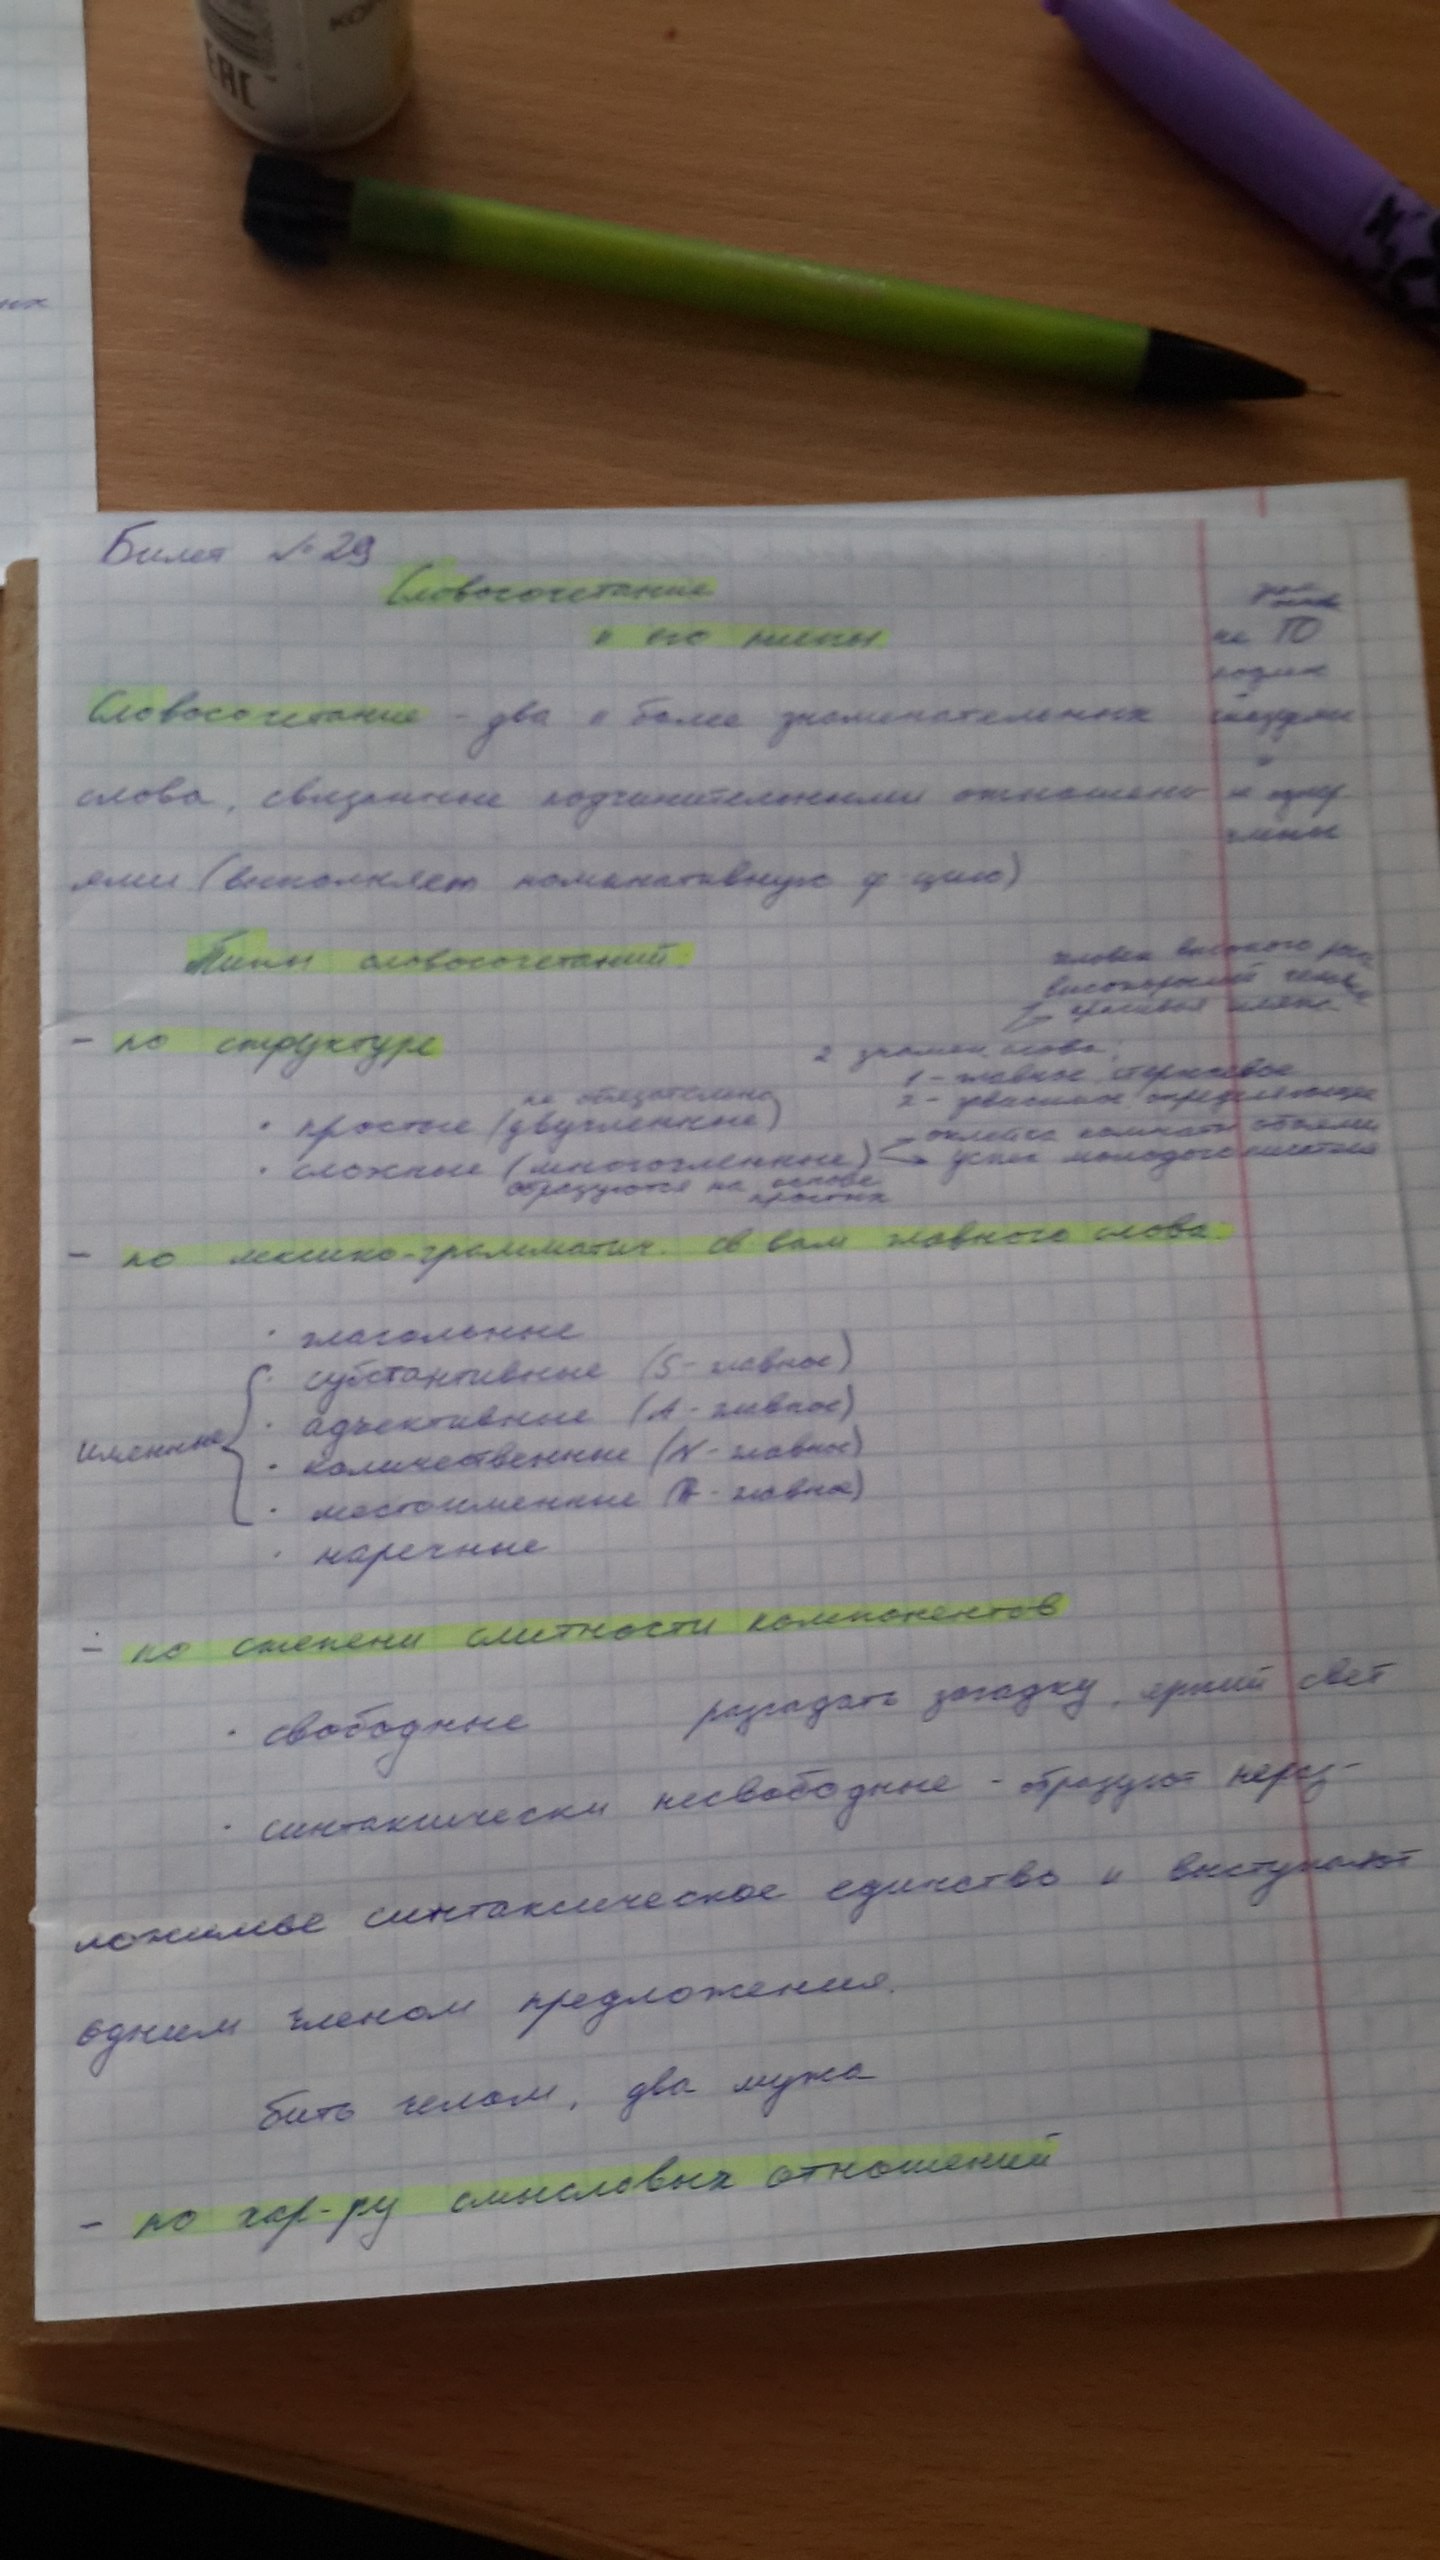 ЕАС
Билет № 29
Словосочетание
и его типы
на ТО
Словосочетание - два и более знаменательных
слова, связанные подчинительными отношени-
ями (выполняет номинативную ф-цию)
члены
Типы словосочетаний:
человек высокого рос
высокорослый челов
красивая
- по структуре
2 знамен. слова:
1 - главное, стержневое
2 - зависимое, определяющее
не обязательно
• простые (двучленные)
оклейка комнаты обоями
• сложные (многочленные)
успех молодого писателя
образуются на основе
простых
- по лексико-грамматич. св-вам главного слова.
• глагольные
• субстантивные (S - главное)
• адъективные (А - главное)
именные
• количественные (N - главное)
• местоименные (главное)
• наречные
- по степени слитности компонентов
• свободные разгадать загадку, яркий свет
• синтаксически несвободные - образуют нераз-
ложимое синтаксическое единство и выступают
одним членом предложения.
бить челом, два мужа
- по хар-ру смысловых отношений